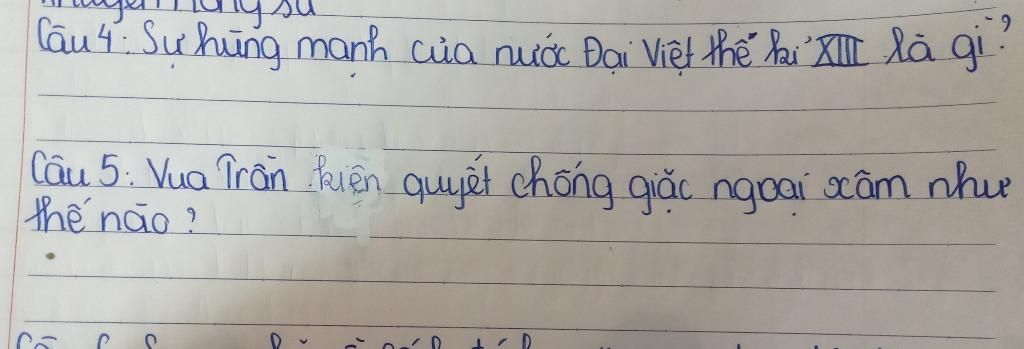 Câu 4: Sự hùng mạnh của nước Đại Việt thế kỉ XIII là gì?
Câu 5: Vua Trần kiện quyết chống giặc ngoại xâm như
thế nào?